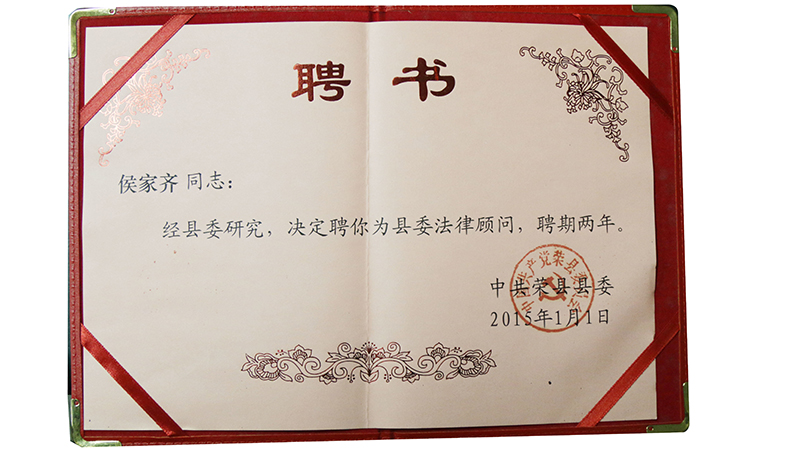 聘书
侯家齐 同志：
经县委研究，决定聘你为县委法律顾问，聘期两年。
中共荣县县委
2015年1月1日